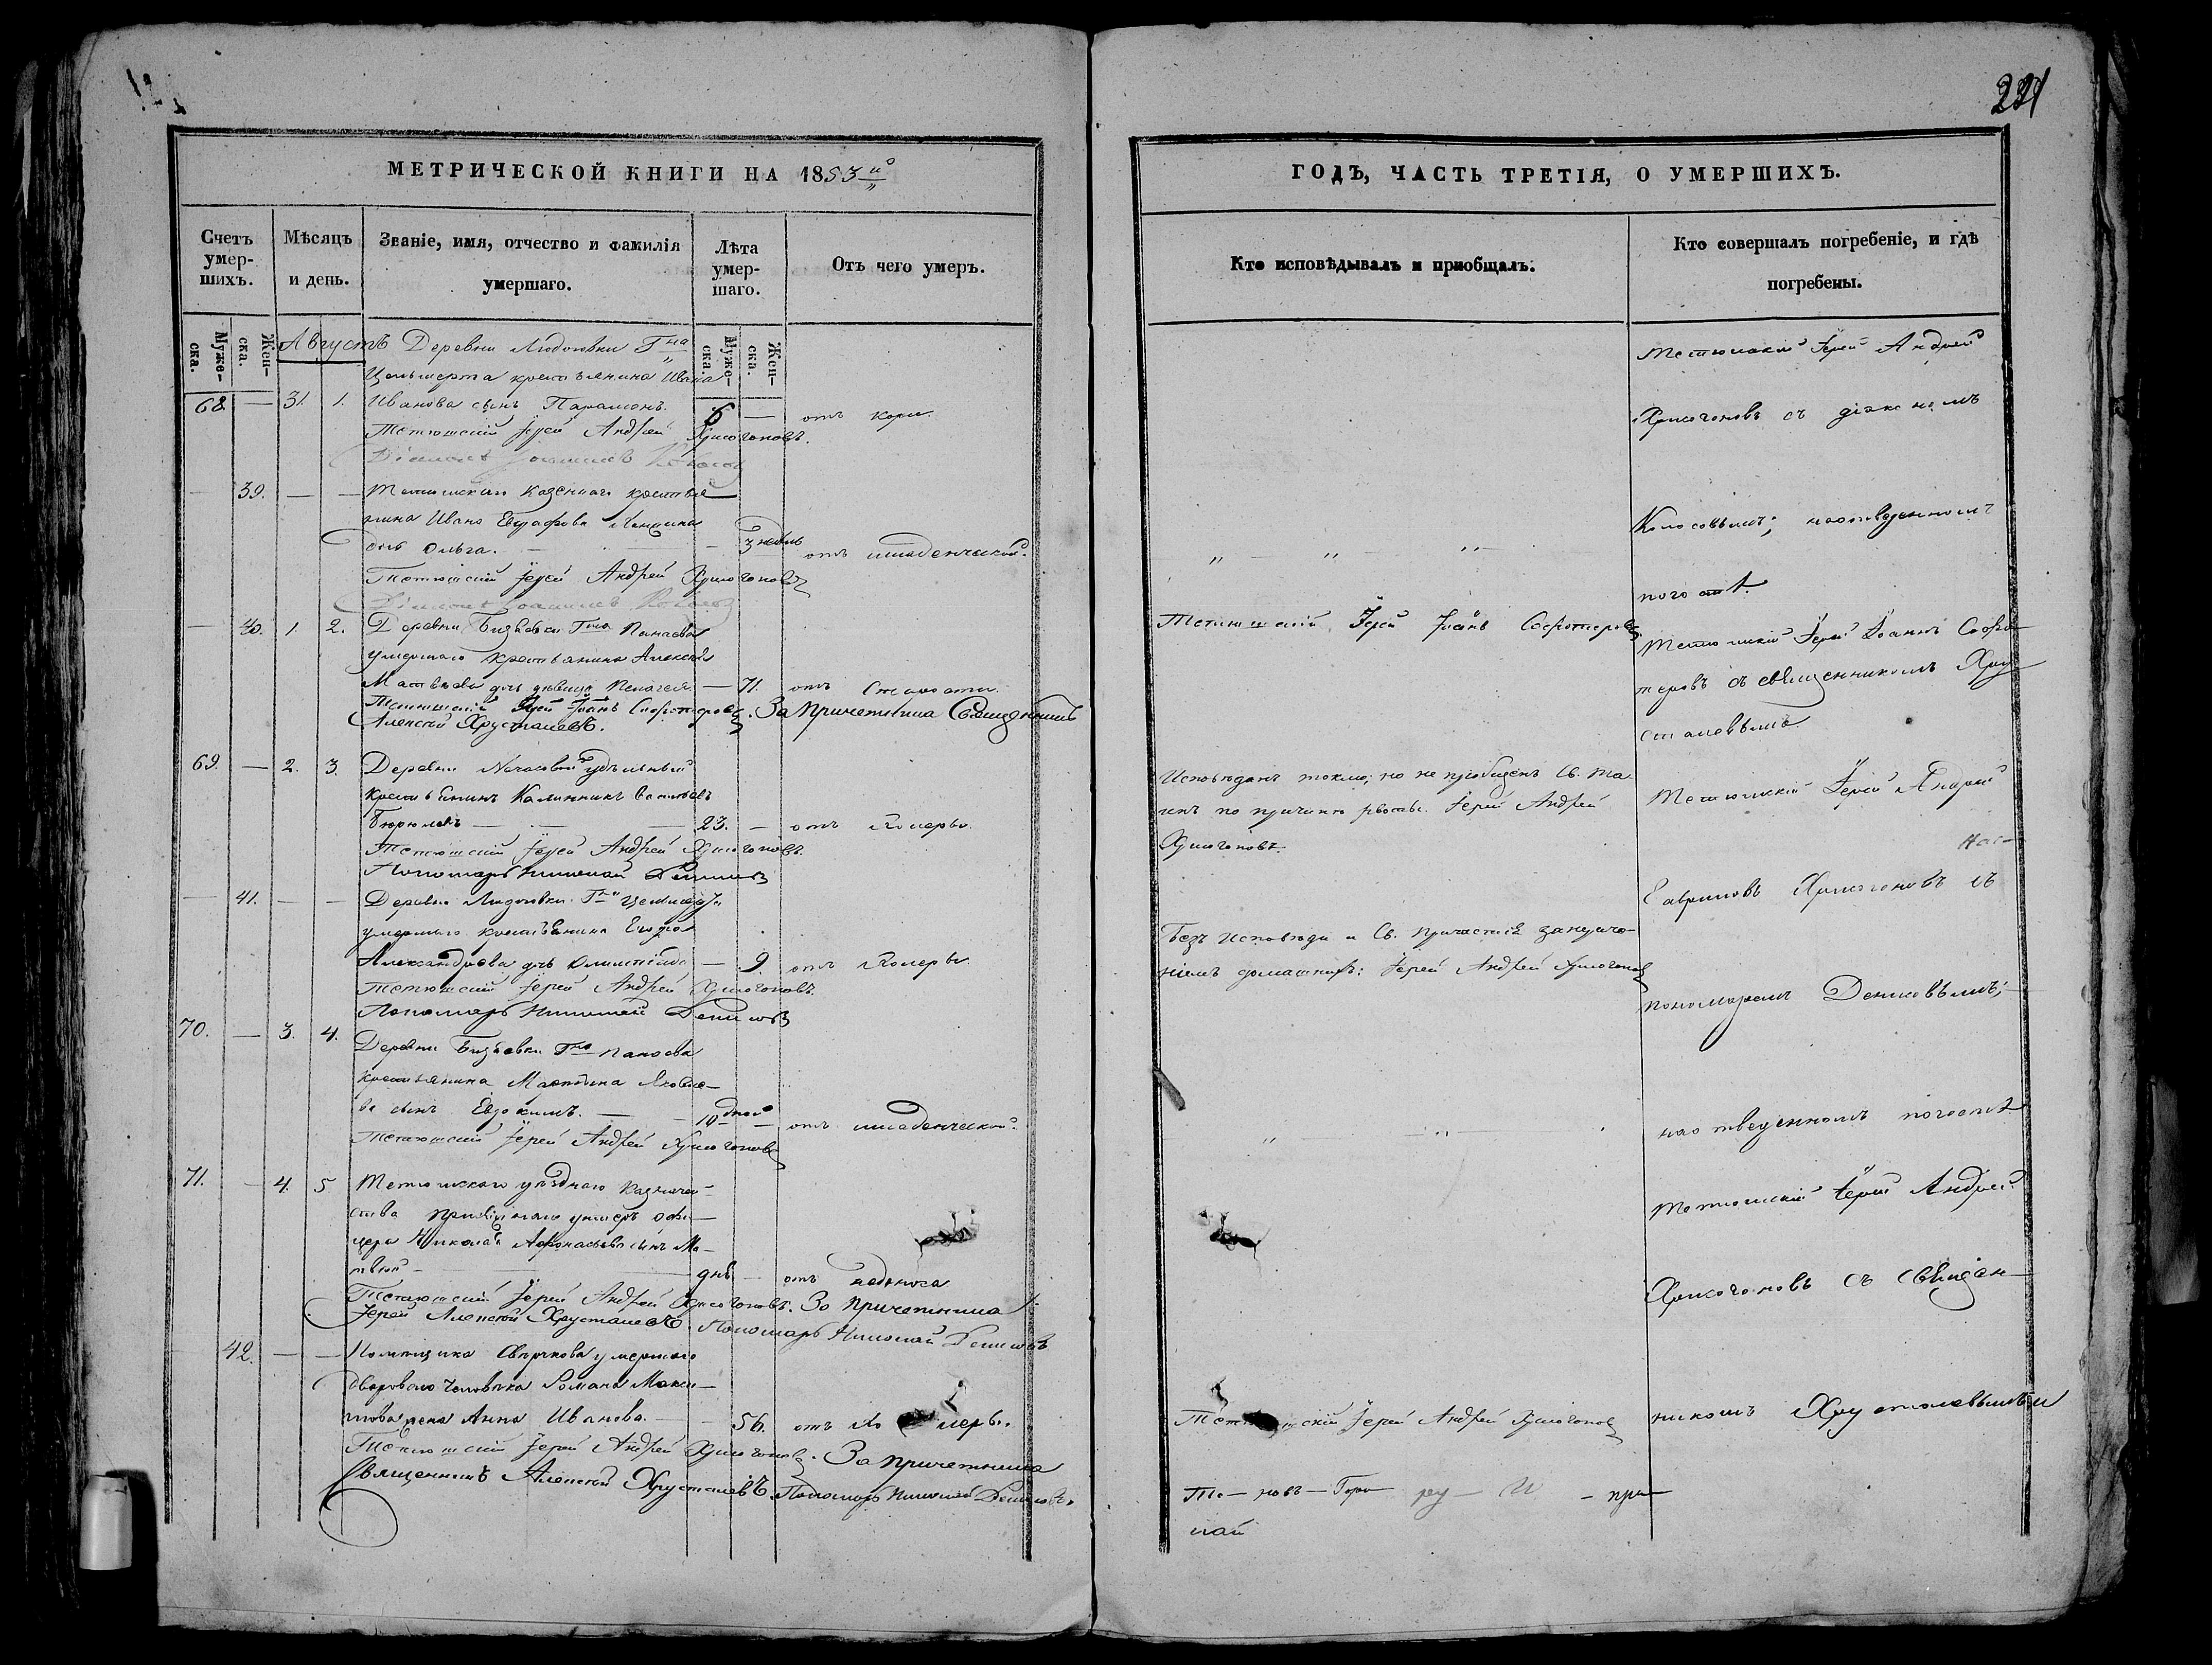 221
МЕТРИЧЕСКОЙ КНИГИ НА 1853й
Счетъ умер-шихъ.
Мѣсяцъ и день.
Званіе, имя, отчество и фамилія умершаго.
Лѣта умер-шаго.
Отъ чего умеръ.
Муже-ска.
Жен-ска.
Муже-ска.
Жен-ска.
Августъ Деревни Г-на
крестьянина Ивана
68. — 31. 1. Иванова сынъ Парамонъ. 6 — отъ кори.
Тетюшскій Іерей Андрей Хрисогоновъ.
Діаконъ Іоаннъ Колосовъ
— 39. — — Тетюшскаго казеннаго крестья
нина Ивана Евграфова
дочь Ольга. — 3 недѣль отъ младенческой.
Тетюшскій Іерей Андрей Хрисогоновъ
Діаконъ Іоаннъ Колосовъ
— 40. 1. 2. Деревни Бизяевки Г-на Панаева
умершаго крестьянина Алексѣя
Матвѣева дочь дѣвица Пелагея — 71. отъ старости.
Тетюшскій Іерей Іоаннъ Сооротеровъ. За Причетника Священникъ
Алексѣй Хрусталевъ.
69. — 2. 3. Деревни удѣльный
крестьянинъ Каллинникъ Васильевъ
— 23. — отъ Холеры.
Тетюшскій Іерей Андрей Хрисогоновъ.
Пономарь Николай Денисовъ
— 41. — — Деревни Г-на
умершаго крестьянина Егора
Александрова дочь Олимпіада — 9. отъ Холеры.
Тетюшскій Іерей Андрей Хрисогоновъ.
Пономарь Николай Денисовъ
70. — 3. 4. Деревни Бизяевки Г-на Панаева
крестьянина Мартина Яковле-
ва сынъ Евдокимъ. — 10 дней — отъ младенческой.
Тетюшскій Іерей Андрей Хрисогоновъ
71. — 4. 5. Тетюшскаго уѣзднаго казначей-
ства унтеръ офи-
цера Николая Афонасьева сынъ Ма-
твѣй — днь — отъ недоноса
Тетюшскій Іерей Андрей Хрисогоновъ. За причетника
Іерей Алексѣй Хрусталевъ. Пономарь Николай Денисовъ
— 42. — — Помѣщика умершаго
двороваго человѣка Романа Макси-
мова жена Анна Иванова. — 56. отъ Холеры.
Тетюшскій Іерей Андрей Хрисогоновъ. За причетника
Священникъ Алексѣй Хрусталевъ. Пономарь Николай Денисовъ.
ГОДЪ, ЧАСТЬ ТРЕТІЯ, О УМЕРШИХЪ.
Кто исповѣдывалъ и пріобщалъ.
Кто совершалъ погребеніе, и гдѣ погребены.
Тетюшскій Іерей Андрей
Хрисогоновъ съ діакономъ
Колосовымъ; на отведенномъ
погостѣ.
Тетюшскій Іерей Іоаннъ
Тетюшскій Іерей Іоаннъ
съ священникомъ Хру
сталевымъ.
Исповѣданъ токмо, но не пріобщенъ Св. Та
инъ по причинѣ рвоты. Іерей Андрей
Хрисогоновъ.
Тетюшскій Іерей Андрей
Гавриловъ Хрисогоновъ съ
Безъ исповѣди и Св. Причастія
домашнихъ: Іерей Андрей Хрисогоновъ
пономаремъ Денисовымъ;
на отведенномъ погостѣ
Тетюшскій Іерей Андрей
Хрисогоновъ съ священ-
Тетюшскій Іерей Андрей Хрисогоновъ
никомъ Хрусталевымъ и
Те — новъ — Гори — ру — И — при
лай